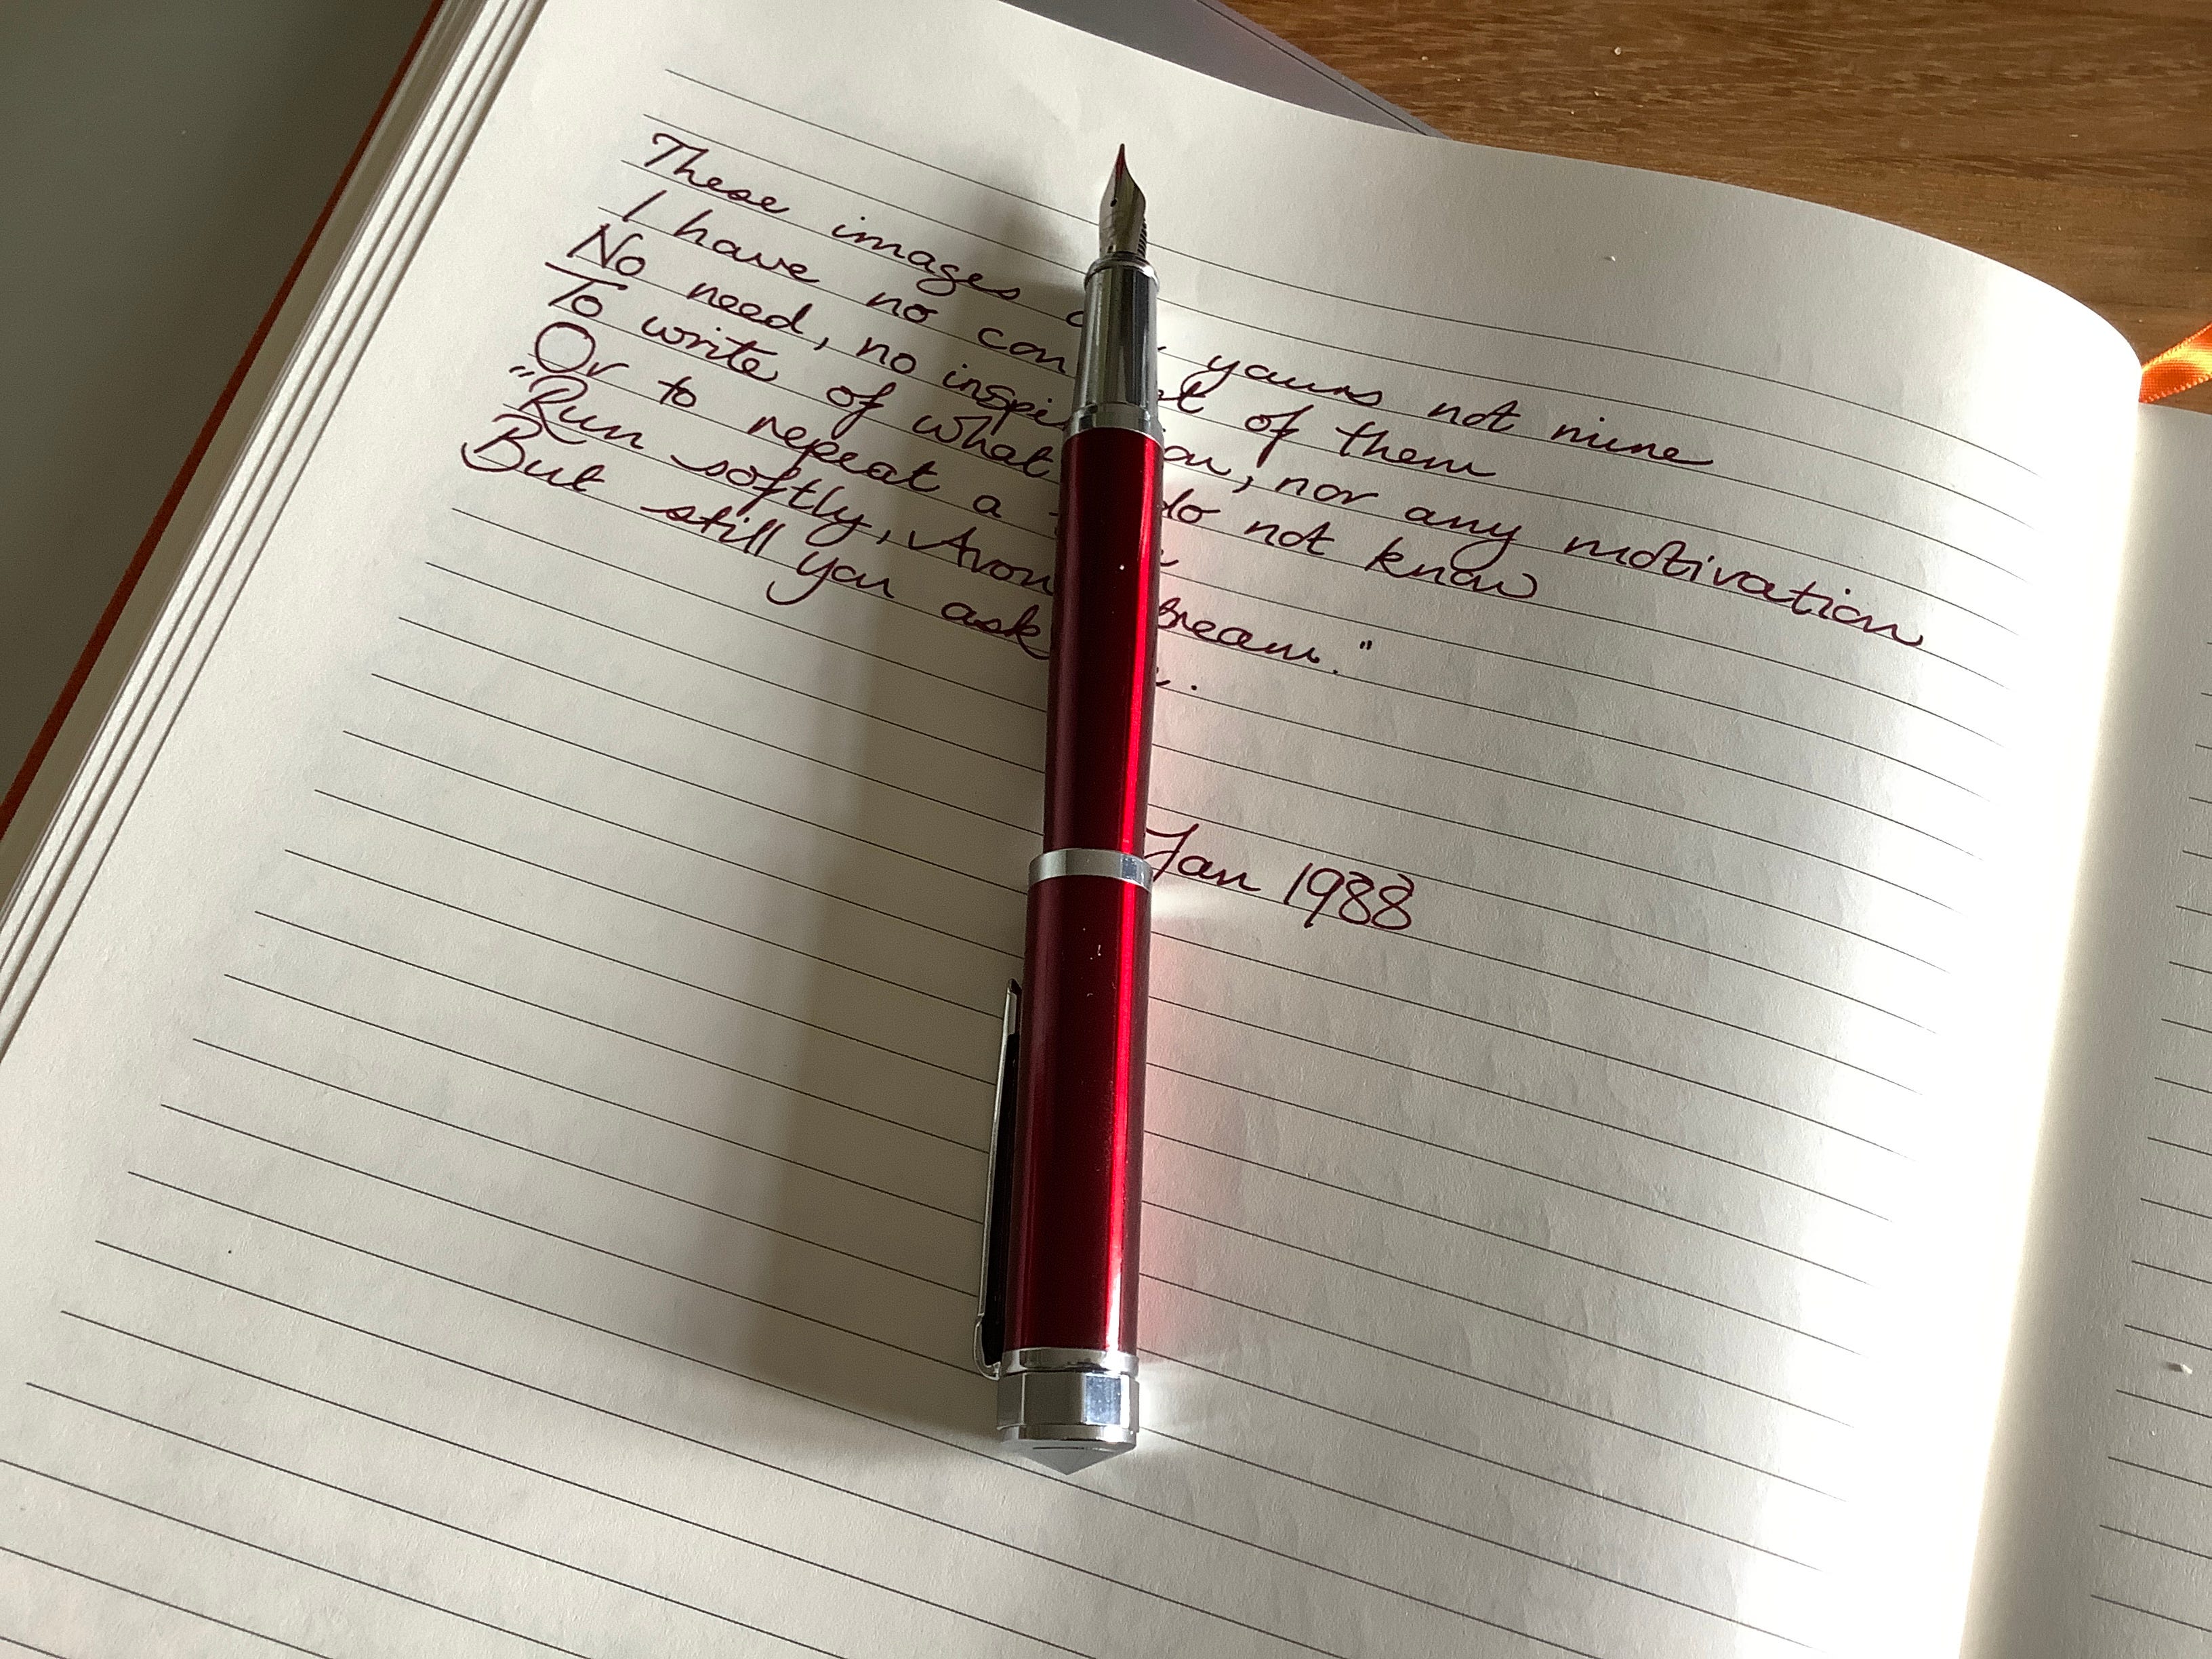 These images yours not mine
I have no of them
No need, no inspiration, nor any motivation
To write of what do not know
Or to repeat a
"Run softly, Avon
But still you ask
Jan 1988